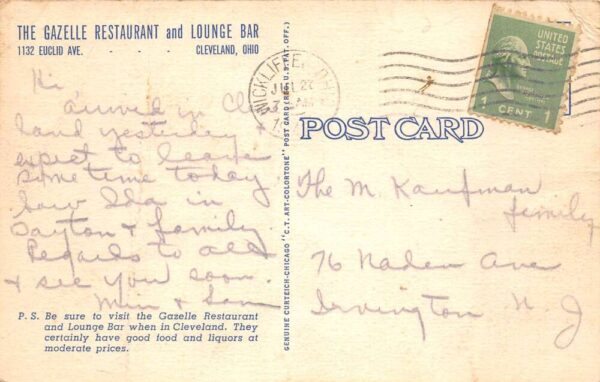 THE GAZELLE RESTAURANT and LOUNGE BAR
1132 EUCLID AVE. - - - CLEVELAND, OHIO
Hi
arrived in Cleve
land yesterday &
expect to leave
some time today
saw Ida in
Dayton & family.
Regards to all
& see you soon.
Min & Sam
P.S. Be sure to visit the Gazelle Restaurant
and Lounge Bar when in Cleveland. They
certainly have good food and liquors at
moderate prices.
GENUINE CURTEICH-CHICAGO "C.T. ART-COLORTONE" POST CARD (REG. U.S. PAT. OFF.)
WICKLIFFE, OHIO
JUL 27
AM
UNITED
STATES
POSTAGE
1 CENT 1
POST CARD
The M. Kaufman
family
76 Naden Ave
Irvington N J